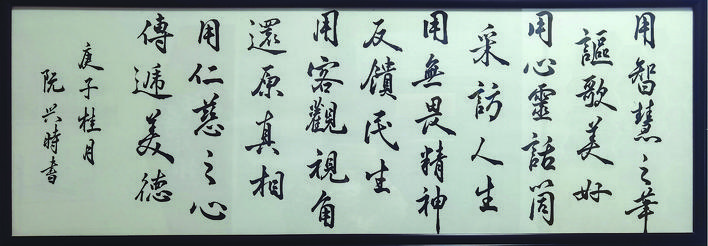 用智慧之華
謳歌美好
用心靈話筒
采訪人生
用無畏精神
反饋民生
用客觀視角
還原真相
用仁慈之心
傳遞美德
庚子桂月
阮兴時書